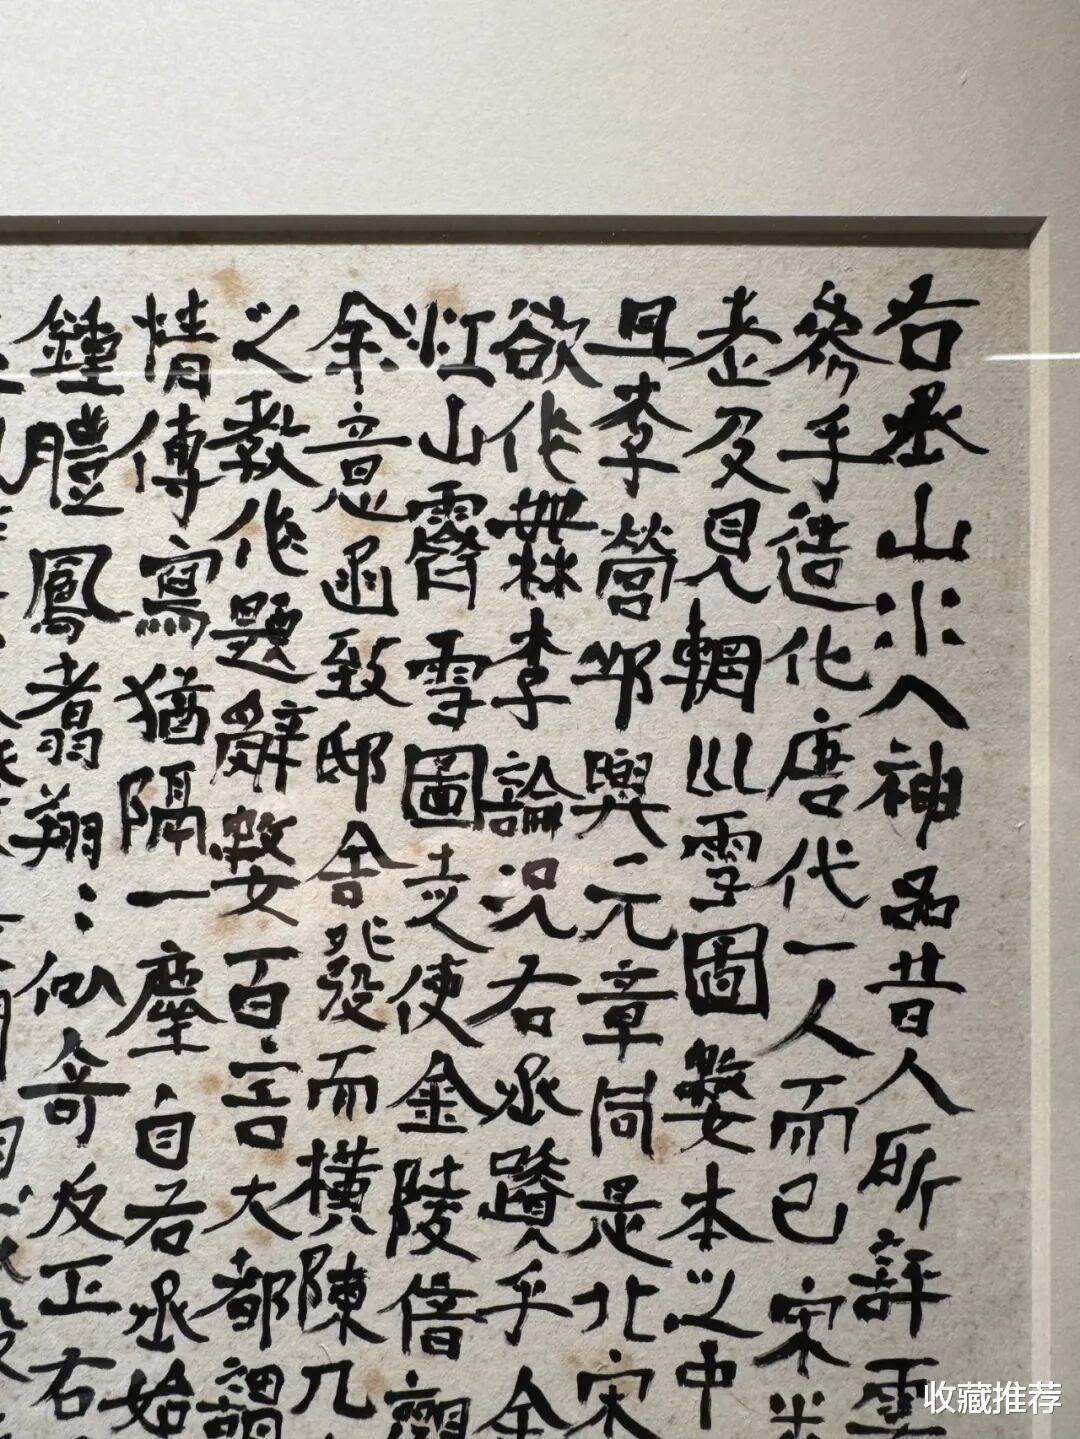 右丞山水入神品昔人所評雲
參手造化唐代一人而已宋米
老止及見輞川雪圖數本之中
且李營邱與元章同是北宋
欲作無李論況右丞蹟乎余
江山霽雪圖走使金陵借觀
余意函致邸舍發而橫陳几
之教作題辭數百言大都謂
情傳寫猶隔一塵自右丞始
鍾體鳳翥翔〻似奇反正右
收藏推荐